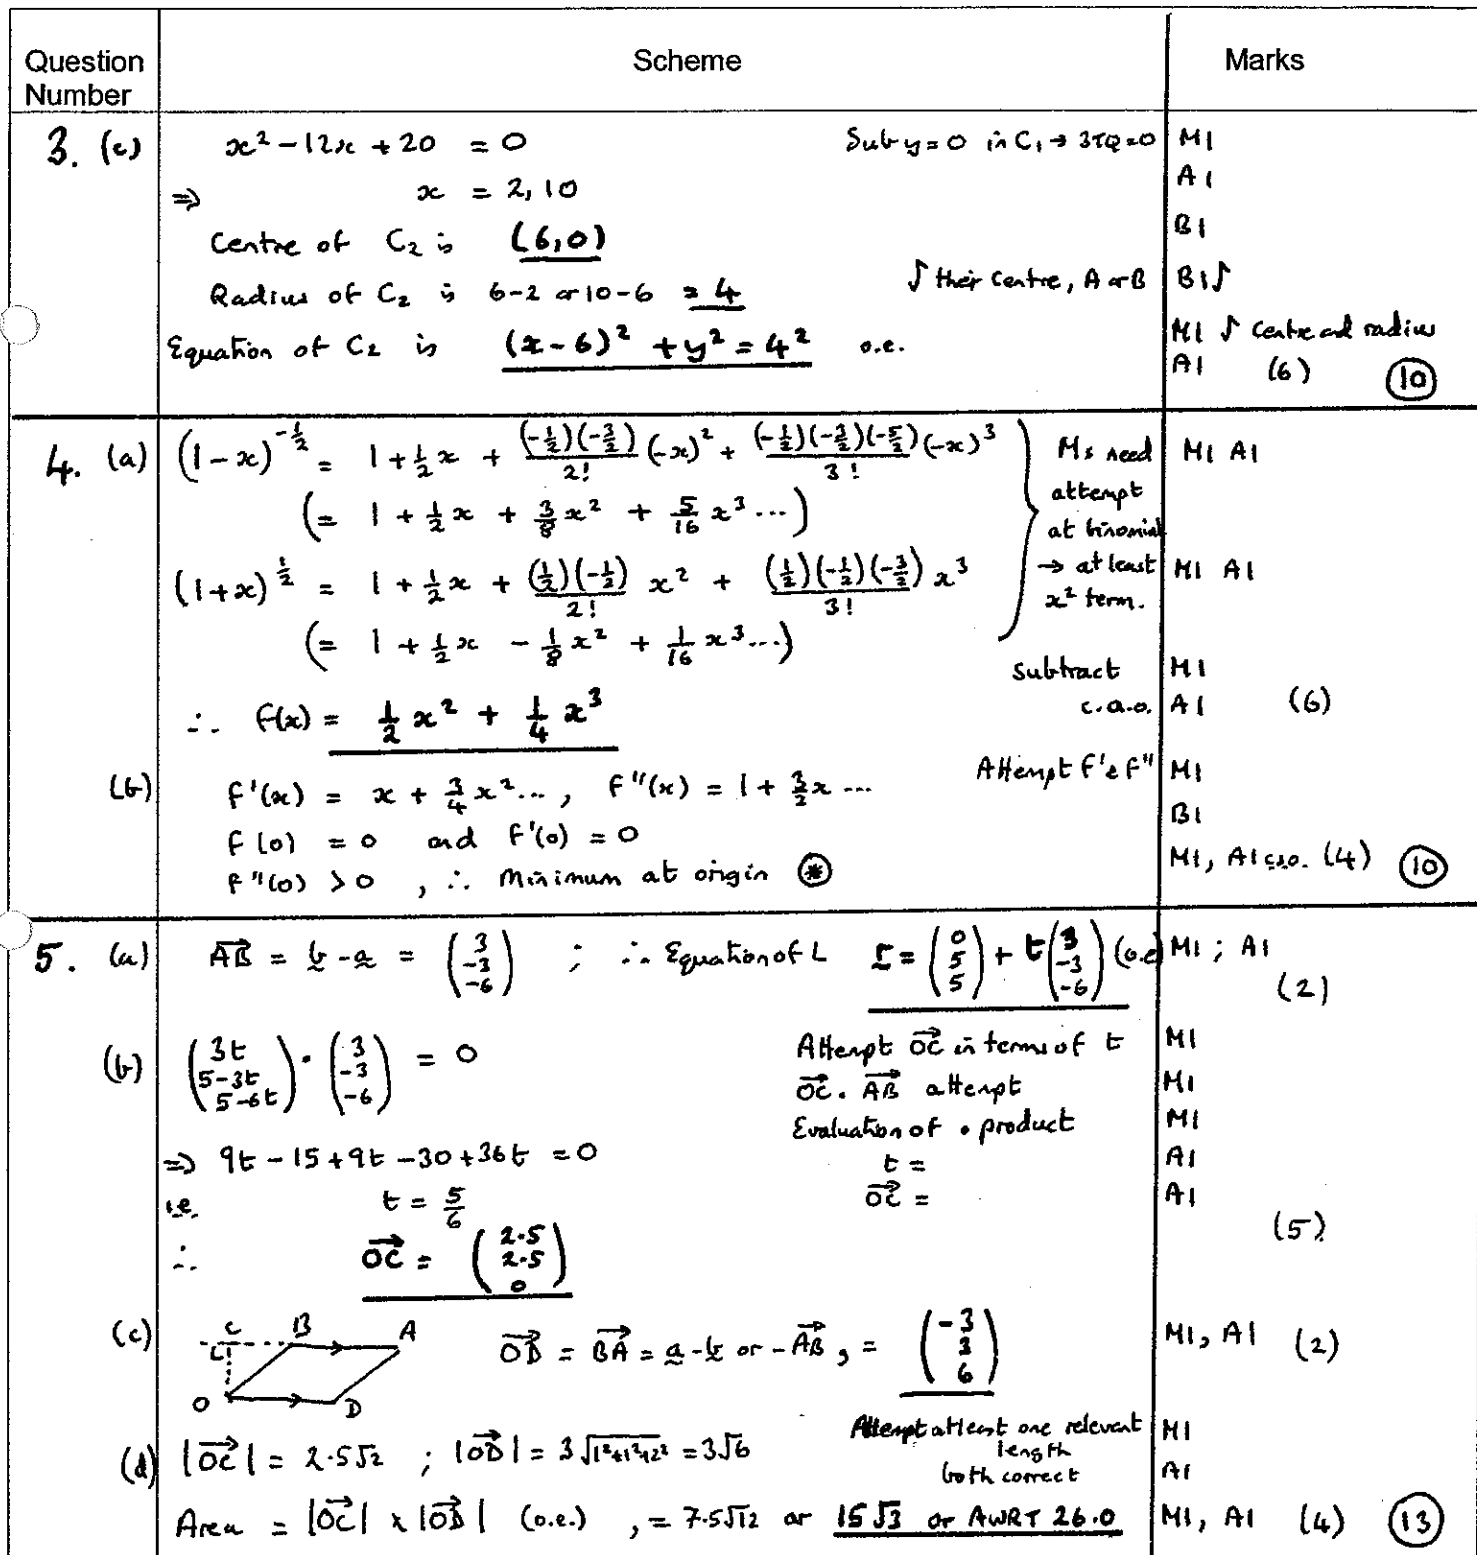 Question Number Scheme Marks
3. (c) x² - 12x + 20 = 0 Sub y = 0 in C₁ → 3TQ = 0 M1
⇒ x = 2, 10 A1
Centre of C₂ is (6,0) B1
Radius of C₂ is 6-2 or 10-6 = 4 ∫ their centre, A or B B1∫
Equation of C₂ is (x-6)² + y² = 4² o.e. M1 ∫ centre and radius
A1 (6) (10)
4. (a) (1-x)^{-1/2} = 1 + ½x + (-½)(-3/2)/2! (-x)² + (-½)(-3/2)(-5/2)/3! (-x)³ M1 A1
(= 1 + ½x + 3/8 x² + 5/16 x³ ...)
Ms need attempt at binomial → at least x² term.
(1+x)^{1/2} = 1 + ½x + (½)(-½)/2! x² + (½)(-½)(-3/2)/3! x³ M1 A1
(= 1 + ½x - 1/8 x² + 1/16 x³ ...)
Subtract M1
∴ f(x) = ½x² + ¼x³ c.a.o. A1 (6)
(b) f'(x) = x + ¾x² ..., f''(x) = 1 + 3/2 x ... Attempt f' & f'' M1
f(0) = 0 and f'(0) = 0 B1
f''(0) > 0, ∴ Minimum at origin (*) M1, A1 c.s.o. (4) (10)
5. (a) AB→ = b - a = (3, -3, -6) ; ∴ Equation of L r = (0, 5, 5) + t(3, -3, -6) (o.e) M1 ; A1
(2)
(b) (3t, 5-3t, 5-6t) • (3, -3, -6) = 0 Attempt OC→ in terms of t M1
OC→ . AB→ attempt M1
Evaluation of • product M1
⇒ 9t - 15 + 9t - 30 + 36t = 0 t = A1
i.e. t = 5/6 OC→ = A1
(5)
∴ OC→ = (2.5, 2.5, 0)
(c) C B A O D OD→ = BA→ = a - b or -AB→, = (-3, 3, 6) M1, A1 (2)
Attempt at least one relevant length M1
(d) |OC→| = 2.5√2 ; |OD→| = 3√(1²+1²+2²) = 3√6 both correct A1
Area = |OC→| x |OD→| (o.e.) , = 7.5√12 or 15√3 or AWRT 26.0 M1, A1 (4) (13)